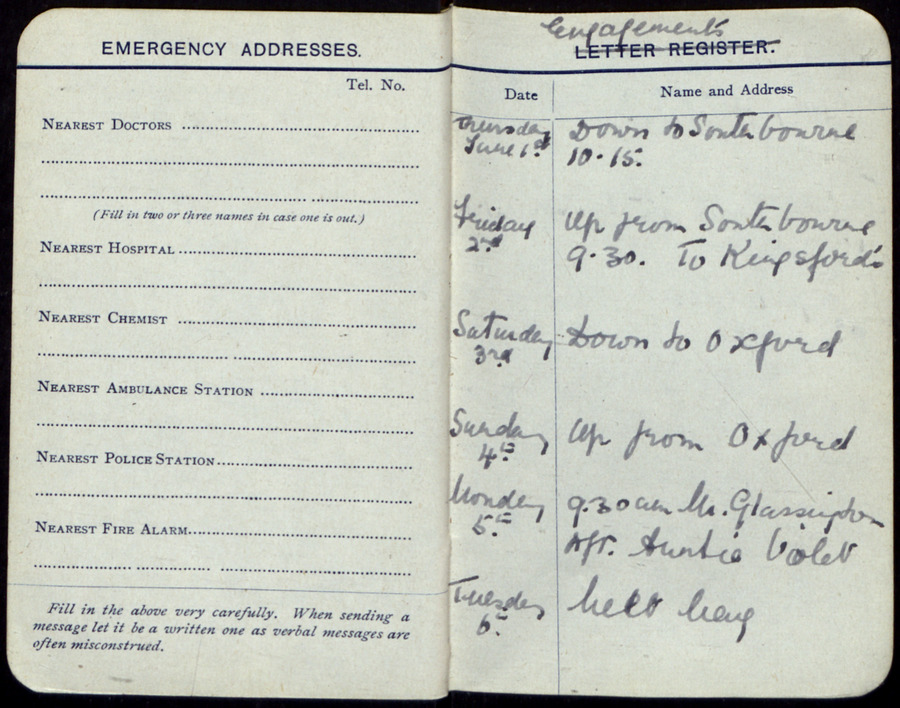 EMERGENCY ADDRESSES.
Tel. No.
NEAREST DOCTORS
(Fill in two or three names in case one is out.)
NEAREST HOSPITAL
NEAREST CHEMIST
NEAREST AMBULANCE STATION
NEAREST POLICE STATION
NEAREST FIRE ALARM
Fill in the above very carefully. When sending a
message let it be a written one as verbal messages are
often misconstrued.
Engagements
LETTER REGISTER.
Date Name and Address
Thursday Down to Southbourne
June 1st 10.15.
Friday Up from Southbourne
2nd 9.30. To Kingsford's
Saturday Down to Oxford
3rd
Sunday Up from Oxford
4th
Monday 9.30am Mr. Glassington
5th Aft. Auntie Violet
Tuesday
6th